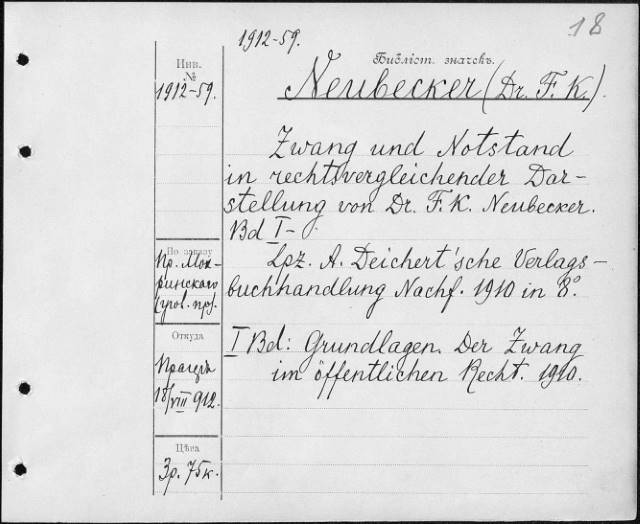 18
1912-59.
Библіот. значекъ.
Инв.
№
1912-59.
Neubecker (Dr. F. K.).
Zwang und Notstand
in rechtsvergleichender Dar-
stellung von Dr. F. K. Neubecker.
Bd I-
Lpz. A. Deichert'sche Verlags-
buchhandlung Nachf. 1910 in 8°.
I Bd: Grundlagen. Der Zwang
im öffentlichen Recht. 1910.
По заказу
пр. Мок-
ринскаго
(угол. пр).
Откуда
Прагеръ
18/VIII 912.
Цѣна
3р. 75к.